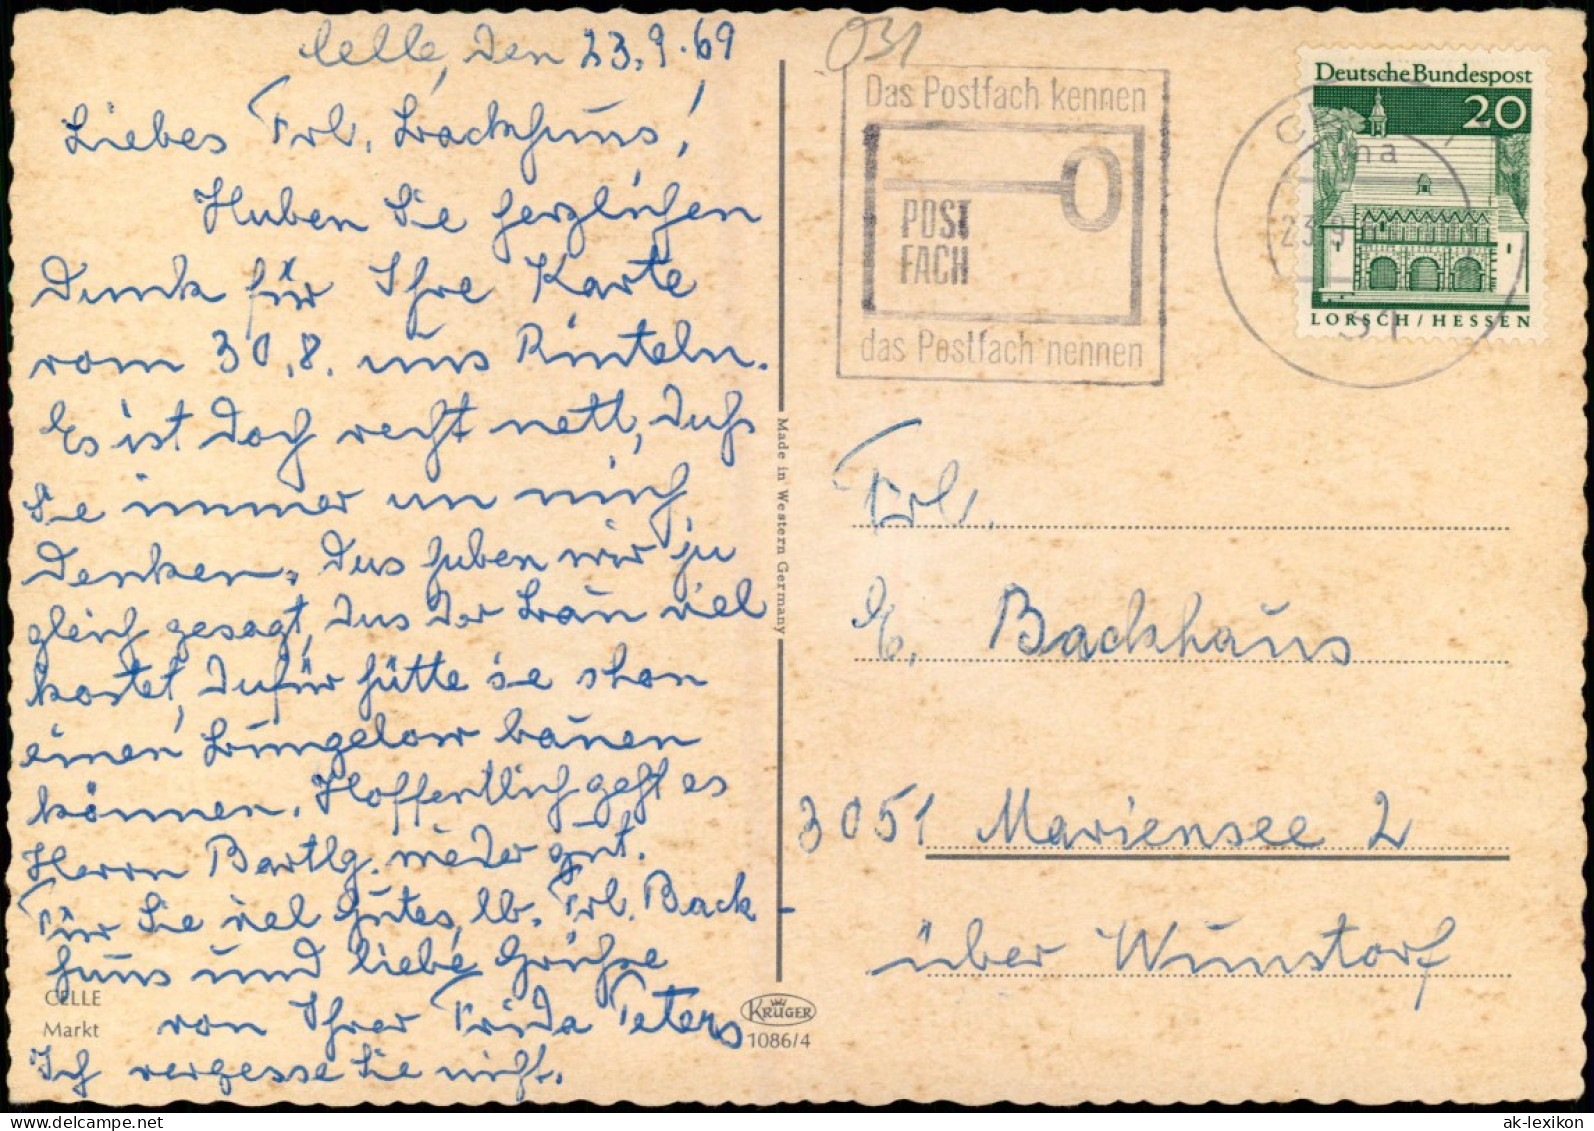 Celle, den 23.9.69
Liebes Frl. Backhaus!
Haben Sie herzlichen
Dank für Ihre Karte
vom 30.8. aus Rinteln.
Es ist doch recht nett, daß
Sie immer an mich
denken. Das haben wir ja
gleich gesagt, das der Bau viel
kostet, dafür hätte Sie schon
einen Bungelow bauen
können. Hoffentlich geht es
Herrn Bartlg. wieder gut.
Für Sie viel Gutes, lb. Frl. Back-
haus und liebe Grüße
von Ihrer Frida Peters
Ich vergesse Sie nicht.
CELLE
Markt
Made in Western Germany
KRÜGER
1086/4
031
Das Postfach kennen
POST
FACH
das Postfach nennen
Deutsche Bundespost
20
LORSCH/HESSEN
ma
23.9
31
Frl.
E. Backhaus
3051 Mariensee 2
über Wunstorf
ak-lexikon.com